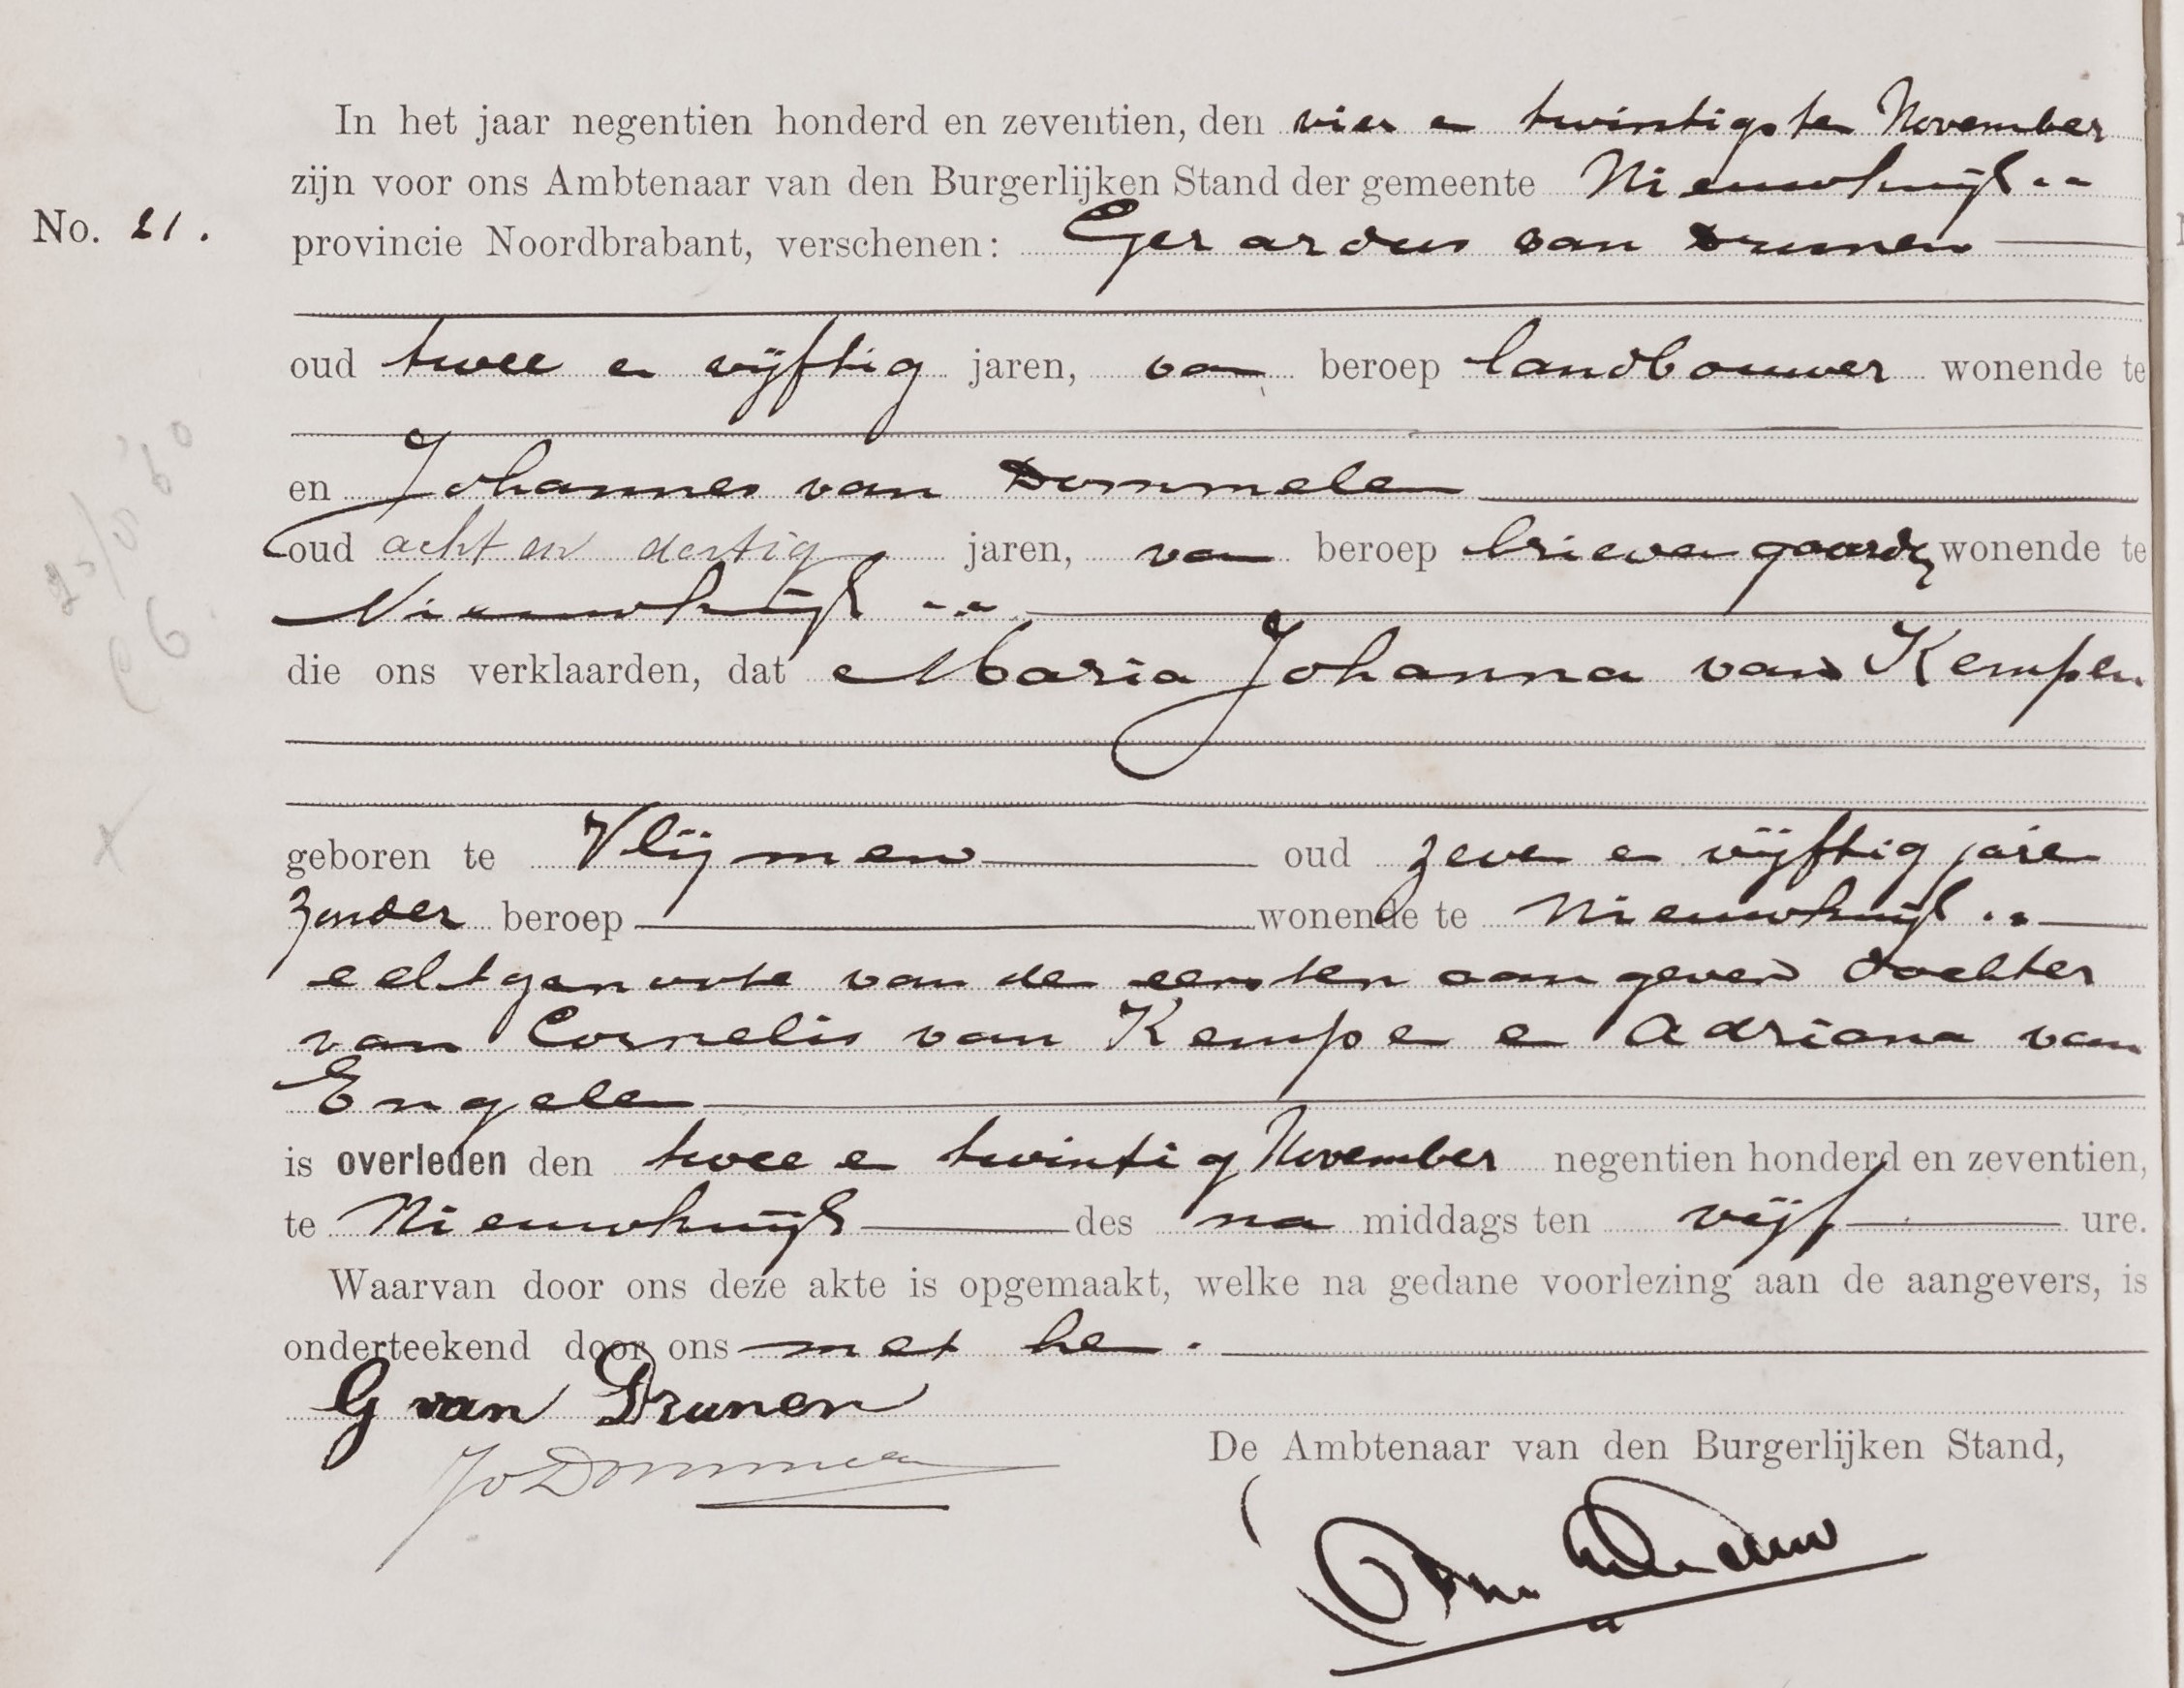 In het jaar negentien honderd en zeventien, den vier en twintigsten November
zijn voor ons Ambtenaar van den Burgerlijken Stand der gemeente Nieuwkuijk
No. 21. provincie Noordbrabant, verschenen: Gerardus van Drunen
oud twee en vijftig jaren, van beroep landbouwer wonende te
en Johannes van Dommelen
oud acht en dertig jaren, van beroep brievengaarder wonende te
Nieuwkuijk
die ons verklaarden, dat Maria Johanna van Kempen
geboren te Vlijmen oud zeven en vijftig jaren
zonder beroep wonende te Nieuwkuijk
echtgenoote van de eersten aangever dochter
van Cornelis van Kempen en Adriana van
Engelen
is overleden den twee en twintig November negentien honderd en zeventien,
te Nieuwkuijk des na middags ten vijf ure.
Waarvan door ons deze akte is opgemaakt, welke na gedane voorlezing aan de aangevers, is
onderteekend door ons met hen.
G van Drunen
JvDommelen
De Ambtenaar van den Burgerlijken Stand,